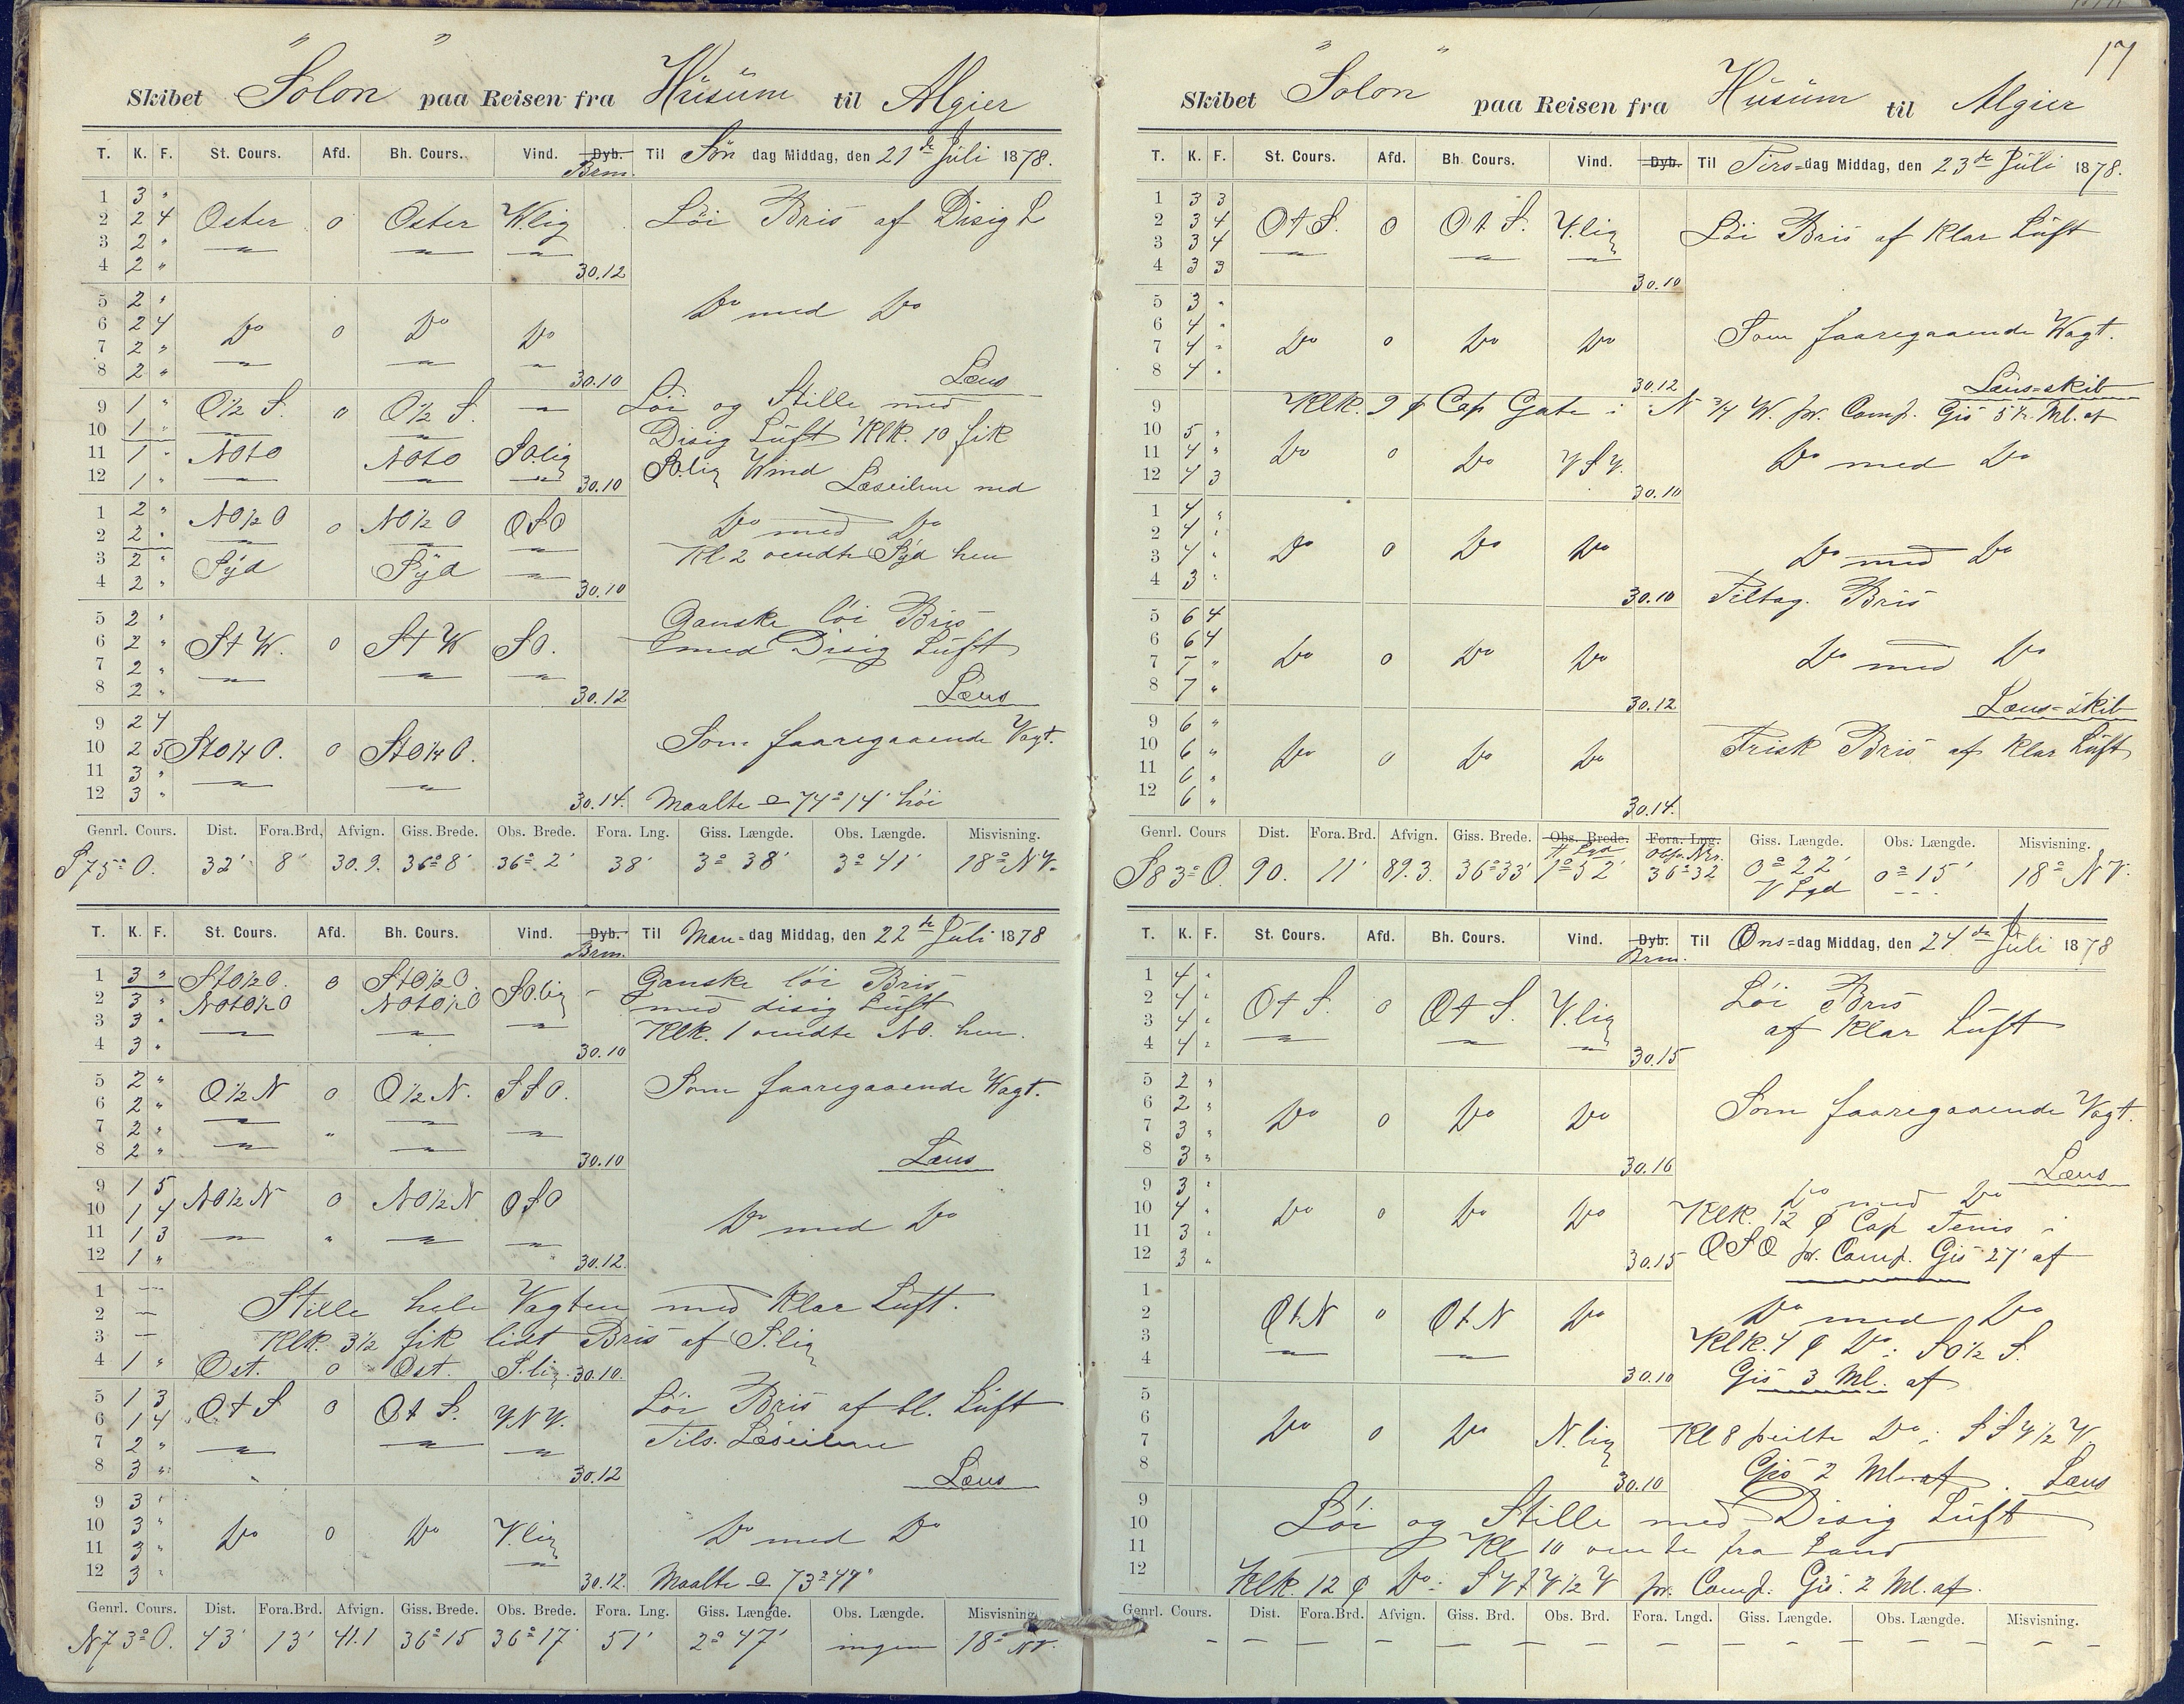 "Solon"
Skibet Solon paa Reisen fra Husum til Algier
T. K. F. St. Cours. Afd. Bh. Cours. Vind. Dyb. Brm. Til Søn dag Middag, den 21de Juli 1878.
1 3 "
2 2 4 Oster 0 Oster W.lig Löi Bris af Disig L
3 2 " — — —
4 2 " 30.12
5 2 " Do med Do
6 2 4 Do 0 Do Do
7 2 "
8 2 " — — — 30.10 Læns
9 1 " O½ S. 0 O½ S. — Löi og Stille med
10 1 " — — Disig Luft Klk. 10 fik
11 1 " NOtO NOtO SO.lig SO.lig Wind
12 1 " — — — 30.10 Læseilene ned
1 2 " NO½O 0 NO½O OSO Do med Do
2 2 " — — — Kl. 2 vendte Syd hen
3 2 " Syd Syd —
4 2 " 30.10
5 2 " Ganske löi Bris
6 2 " St W. 0 St W SO. med Disig Luft
7 2 " — — —
8 2 " 30.12 Læns
9 2 4 Som faaregaaende Vagt.
10 2 5 StO¼O. 0 StO¼O.
11 3 " — —
12 3 " 30.14. Maalte ⊙ 74° 14' höi
Genrl. Cours. Dist. Fora.Brd. Afvign. Giss. Brede. Obs. Brede. Fora. Lng. Giss. Længde. Obs. Længde. Misvisning.
S 75° O. 32' 8' 30.9. 36° 8' 36° 2' 38' 3° 38' 3° 41' 18° NV.
T. K. F. St. Cours. Afd. Bh. Cours. Vind. Dyb. Brm. Til Man= dag Middag, den 22de Juli 1878
1 3 " StO½O. 0 StO½O. SO.lig Ganske löi Bris
2 3 " NOtO½O NOtO½O med disig Luft
3 3 " — — — Klk. 1 vendte NO. hen.
4 3 " 30.10
5 2 " O½N 0 O½N. SSO. Som faaregaaende Vagt.
6 2 " — —
7 2 " — " — —
8 2 " 30.10 Læns
9 1 5 NO½N 0 NO½N OSO
10 1 4 Do med Do
11 1 3 — " — —
12 1 " 30.12.
1 —
2 — Stille hele Vagten med Klar Luft.
3 — Klk. 3½ fik lidt Bris af S.lig
4 1 " Ost. 0 Ost. S.lig. 30.10.
5 1 3 Ot S 0 Ot S. VNV. Löi Bris af kl. Luft
6 1 4 Tils. Læseilene
7 2 " — — —
8 3 " 30.12 Læns
9 3 "
10 3 " Do 0 Do V.lig Do med Do
11 3 " —
12 3 " 30.12. Maalte ⊙ 73° 47'
Genrl. Cours. Dist. Fora.Brd. Afvign. Giss. Brede. Obs. Brede. Fora. Lng. Giss. Længde. Obs. Længde. Misvisning.
N 73° O. 43' 13' 41.1 36° 15 36° 17' 51' 2° 47' ingen 18° NV.
17
Skibet "Solon" paa Reisen fra Husum til Algier
T. K. F. St. Cours. Afd. Bh. Cours. Vind. Dyb. Til Tirs= dag Middag, den 23de Juli 1878.
1 3 3
2 3 4 Ot S. 0 Ot S. V.lig Löi Bris af Klar Luft
3 3 4 — — —
4 3 3 30.10
5 3 "
6 4 " Som faaregaaende Vagt.
7 4 " Do 0 Do Do
8 4 " 30.12 Læns=skib
9 Klk. 9 ¢ Cap Gate i N ¾ W. pr. Comp. Gis 5 Kr. Ml. af
10 5 "
11 4 " Do 0 Do VSV. Do med Do
12 4 3 30.10
1 4 "
2 4 " Do 0 Do Do Do med Do
3 4 "
4 3 " 30.10 Tiltag. Bris
5 6 4
6 6 4 Do 0 Do Do Do med Do
7 7 "
8 7 " 30.12 Læns=skib
9 6 "
10 6 " Do 0 Do Do Frisk Bris af Klar Luft
11 6 "
12 6 " 30.14.
Genrl. Cours Dist. Fora.Brd. Afvign. Giss. Brede. Obs. Brede. Fora. Lng. Giss. Længde. Obs. Længde. Misvisning.
S 83° O. 90. 11' 89.3. 36° 33' 1° 52' 36° 32 0° 22' 0° 15' 18° NV.
T. K. F. St. Cours. Afd. Bh. Cours. Vind. Dyb. Brm. Til Ons= dag Middag, den 24de Juli 1878
1 4 " Löi Bris
2 4 " Ot S. 0 Ot S. V.lig af Klar Luft
3 4 "
4 4 " — — — 30.15
5 2 "
6 2 " Do 0 Do Do Som faaregaaende Vagt.
7 3 "
8 3 " 30.16 Læns
9 3 " Do med Do
10 4 " Do 0 Do Do Klk. 12 ¢ Cap Tenis i
11 3 " OSO pr. Comp. Gis 27' af
12 3 " 30.15
1
2 Ot N 0 Ot N Do Do med Do
3 — — Klk. 4 ¢ Do: SO½ S.
4 30.10 Gis 3 Ml. af
5
6 Do 0 Do N.lig Kl 8 peilte Do: SSV½V
7 Gis 2 Ml. af. Læns
8 30.10
9
10 Löi og Stille med Disig Luft
11 Kl 10 vendte fra Land
12 Klk. 12 ¢ Do: SVtV½V pr. Comp. Gis. 2 Ml. af.
Genrl. Cours. Dist. Fora.Brd. Afvign. Giss. Brd. Obs. Brd. Fora. Lngd. Giss. Længde. Obs. Længde. Misvisning.